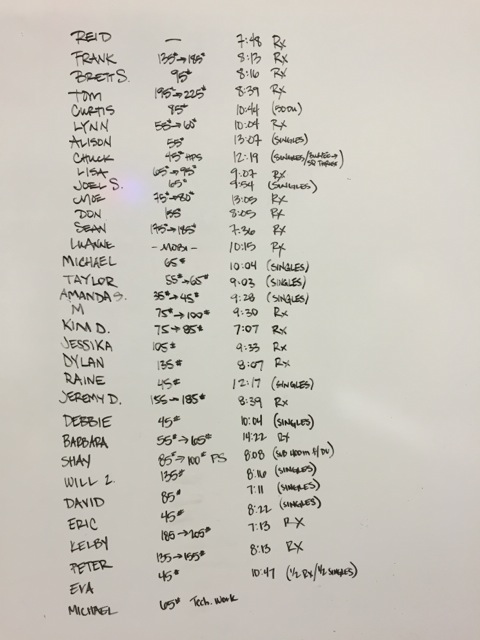 REID — 7:48 Rx
FRANK 135#→185# 8:13 Rx
BRETT S. 95# 8:16 Rx
TOM 195#→225# 8:39 Rx
CURTIS 85# 10:44 (50 DU)
LYNN 55#→60# 10:04 Rx
ALISON 55# 13:07 (SINGLES)
CHUCK 45# HPS 12:19 (SINGLES/
LISA 65#→95# 9:07 Rx
JOEL S. 65# 9:54 (SINGLES)
MOE 75#→80# 13:05 Rx
DON 155 8:05 Rx
SEAN 175#→185# 7:36 Rx
LUANNE – MOBI – 10:15 Rx
MICHAEL 65# 10:04 (SINGLES)
TAYLOR 55#→65# 9:03 (SINGLES)
AMANDA S. 35#→45# 9:28 (SINGLES)
M 75#→100# 9:30 Rx
KIM D. 75→85# 7:07 Rx
JESSIKA 105# 9:33 Rx
DYLAN 135# 8:07 Rx
RAINE 45# 12:17 (SINGLES)
JEREMY D. 155→185# 8:39 Rx
DEBBIE 45# 10:04 (SINGLES)
BARBARA 55#→65# 14:22 Rx
SHAY 85#→100# FS 8:08 (SUB 400m F/DU)
WILL 2. 135# 8:16 (SINGLES)
DAVID 85# 7:11 (SINGLES)
ERIC 45# 8:22 (SINGLES)
KELBY 185→205# 7:13 Rx
PETER 135→155# 8:13 Rx
EVA 45# 10:47 (1/2 Rx/1/2 SINGLES)
MICHAEL 65# Tech. Work